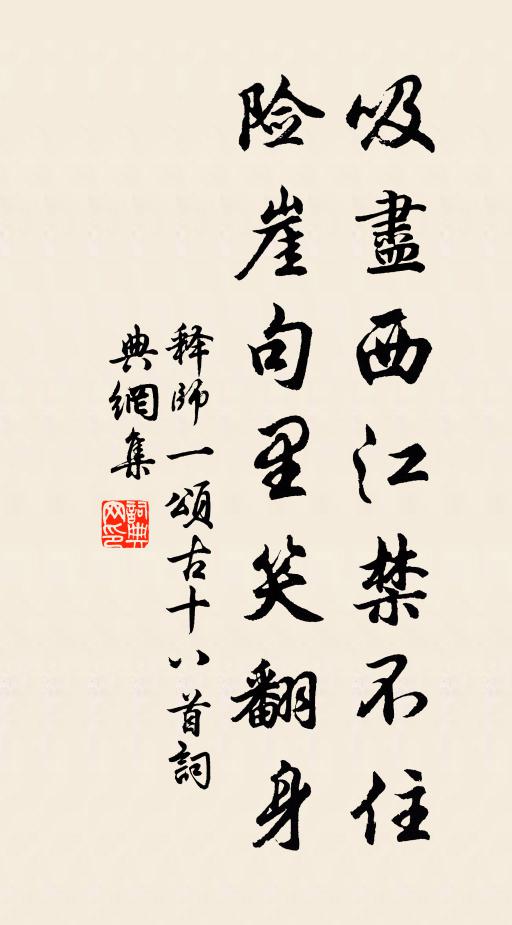 吸盡西江禁不住
险崖句里笑翻身
释师一頌古十八首詞
典網集
詞典网印